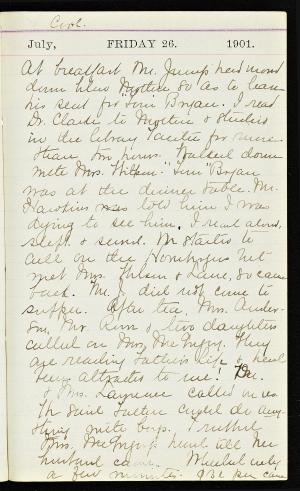 Cool.
July, FRIDAY 26. 1901.
At breakfast Mr. Jump had moved
down below Mother so as to leave
his seat for "Jim" Bryan. I read
Dr. Clarke to Mother & studied
in the library later for more
than two hours. Walked down
with Mrs. "Jim" Bryan
was at the dinner table. Mr.
Hawkins told him I was
dying to see him. I read aloud,
slept & sewed. M. started to
call on the but
met Mrs. & Lane, so came
back. Mr. J. did not come to
supper. After tea, Mrs. Ander-
son, Mr. & two daughters
called on Mrs. They
are reading Father's life & had
been attracted to me! Dr.
& Mrs. Lawrence called on us.
He said Father could do any-
thing with boys. I rubbed
Mrs. head till her
husband came. Wheeled only
a few minutes.